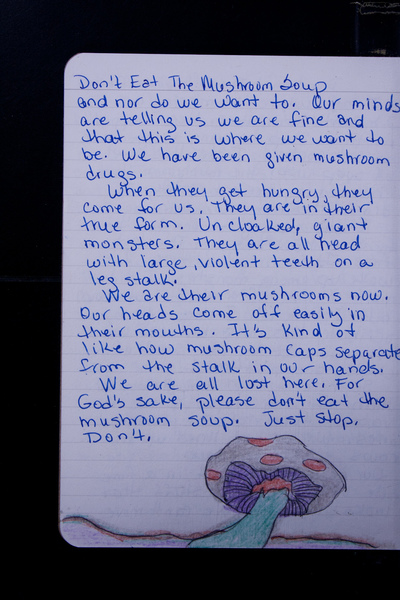 Don't Eat The Mushroom Soup
and nor do we want to. Our minds
are telling us we are fine and
that this is where we want to
be. We have been given mushroom
drugs.
When they get hungry, they
come for us. They are in their
true form. Uncloaked, giant
monsters. They are all head
with large, violent teeth on a
leg stalk.
We are their mushrooms now.
Our heads come off easily in
their mouths. It's kind of
like how mushroom caps separate
from the stalk in our hands.
We are all lost here. For
God's sake, please don't eat the
mushroom soup. Just stop.
Don't.